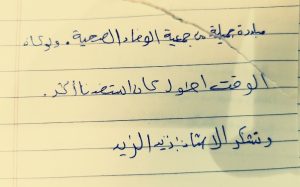 مبادرة جميلة من جمعية الوداد الصحية. ولو كان
الوقت أطول كان استفدنا أكثر.
ونشكر الاستاذ: زيد الزيد